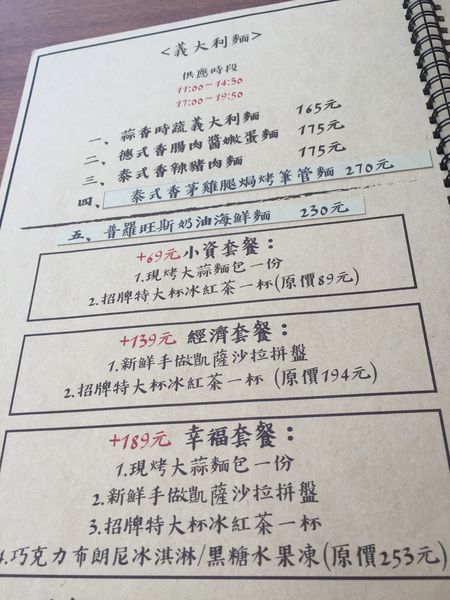 <義大利麵>
供應時段
11:00-14:30
17:00-19:50
一、蒜香時蔬義大利麵 165元
二、德式香腸肉醬嫩蛋麵 175元
三、泰式香辣豬肉麵 175元
四、泰式香茅雞腿焗烤筆管麵 270元
五、普羅旺斯奶油海鮮麵 230元
+69元小資套餐：
1.現烤大蒜麵包一份
2.招牌特大杯冰紅茶一杯(原價89元)
+139元 經濟套餐：
1.新鮮手做凱薩沙拉拼盤
2.招牌特大杯冰紅茶一杯 (原價194元)
+189元 幸福套餐：
1.現烤大蒜麵包一份
2.新鮮手做凱薩沙拉拼盤
3.招牌特大杯冰紅茶一杯
4.巧克力布朗尼冰淇淋/黑糖水果凍(原價253元)